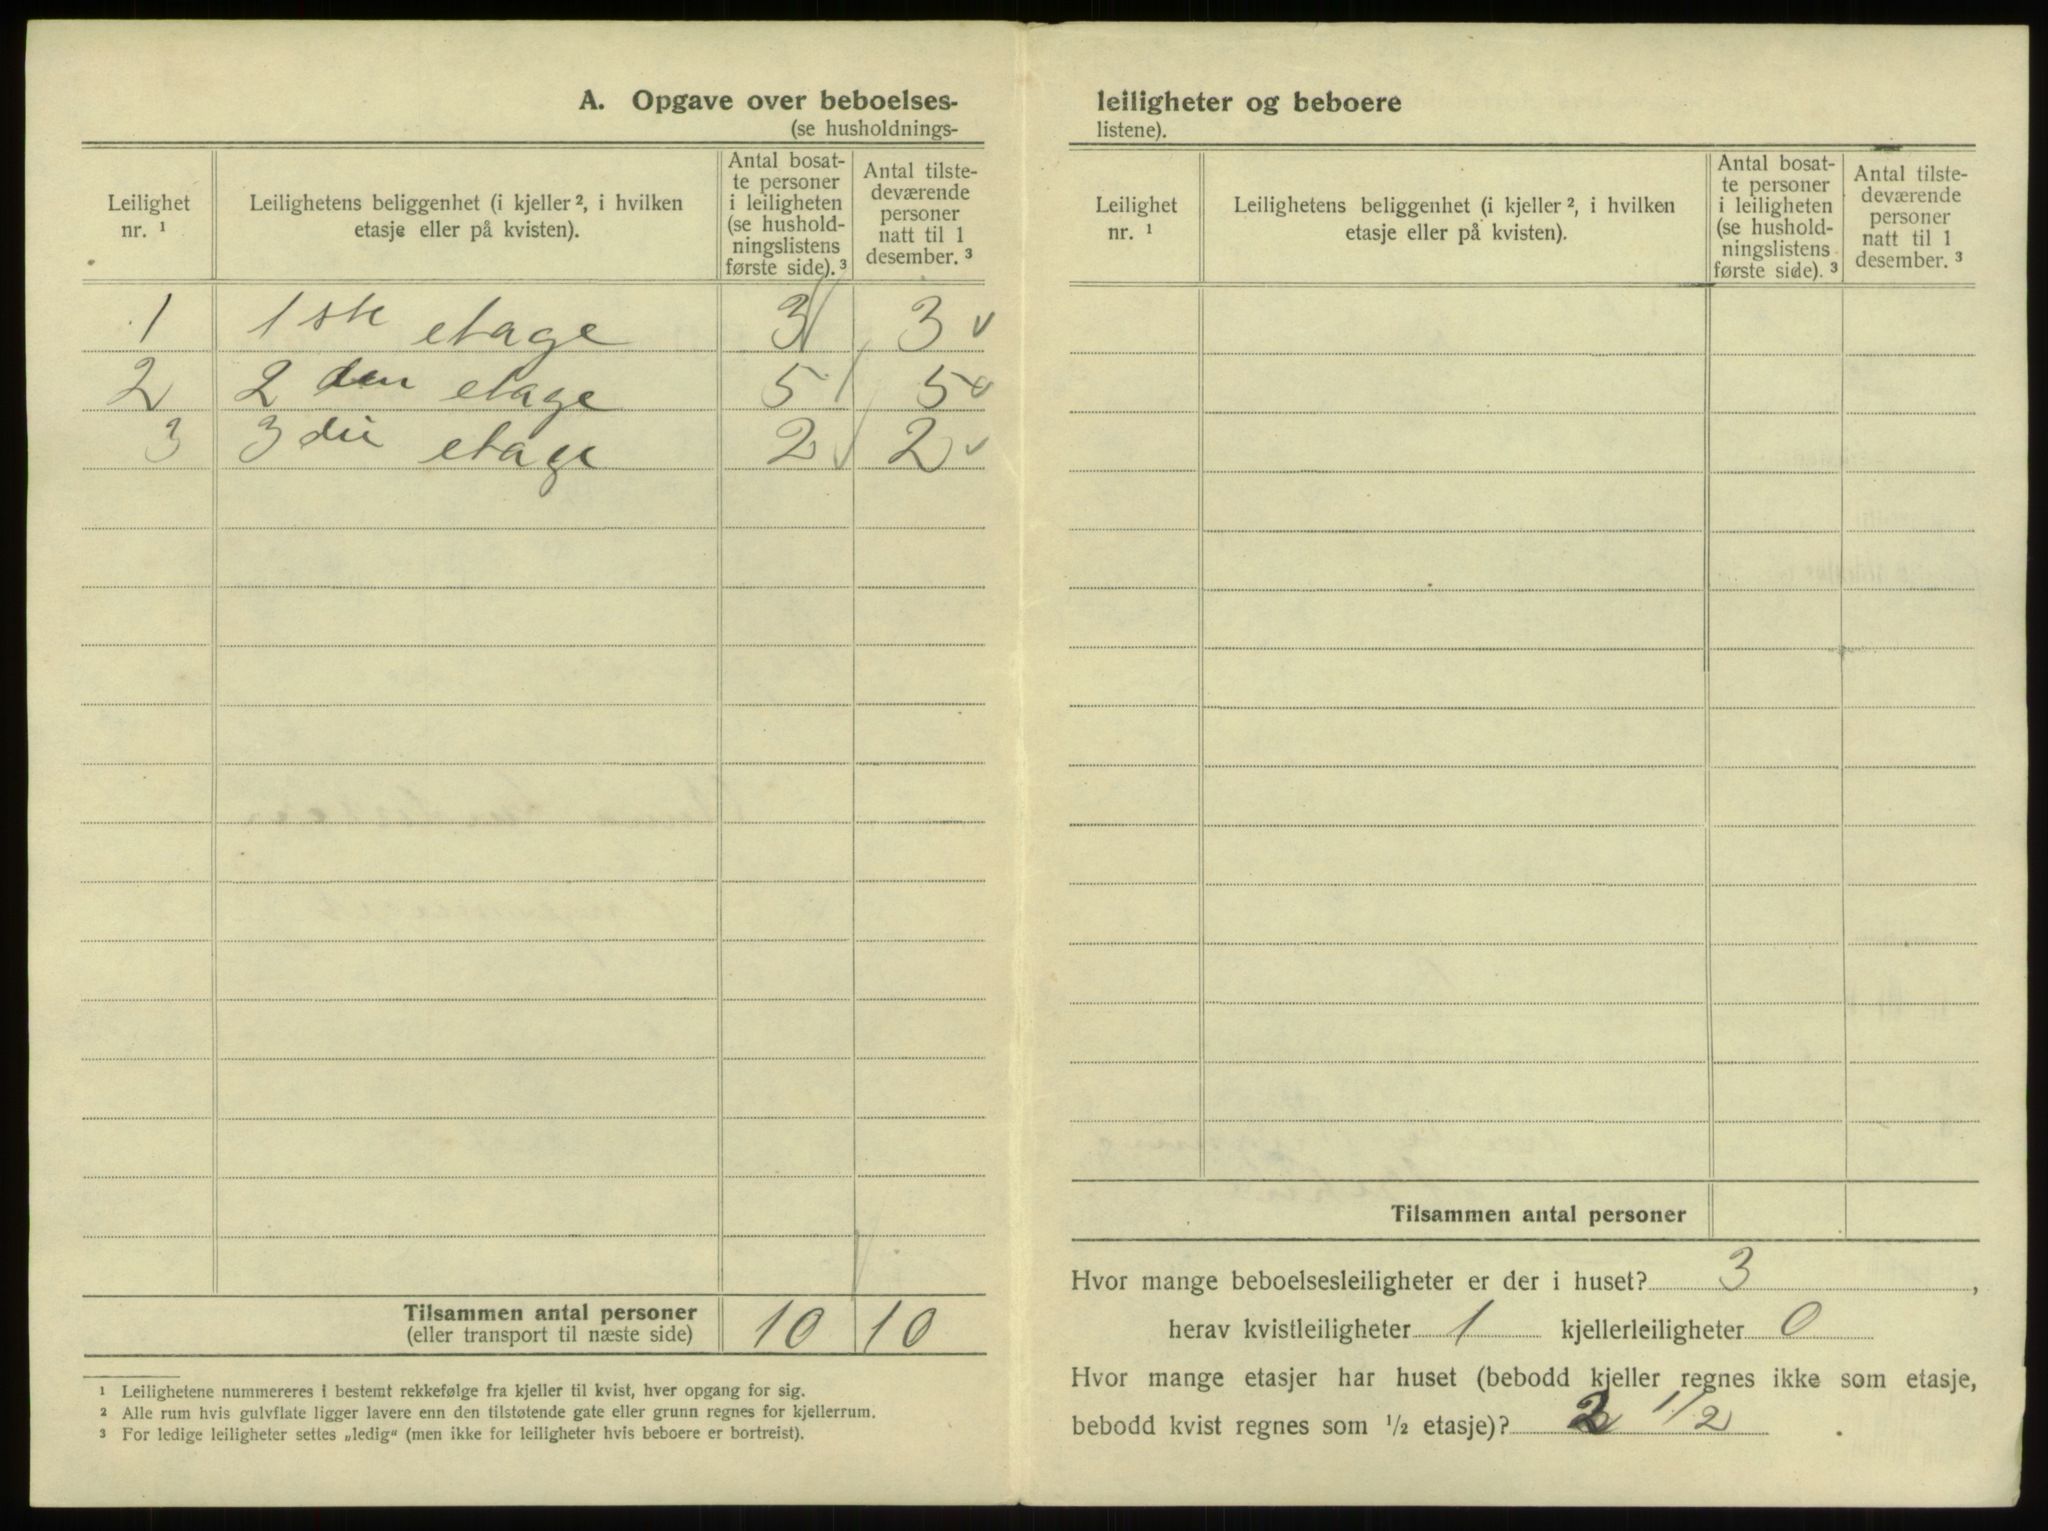 A. Opgave over beboelses-
(se husholdnings-
Leilighet nr. ¹
Leilighetens beliggenhet (i kjeller ², i hvilken etasje eller på kvisten).
Antal bosat-
te personer
i leiligheten
(se hushold-
ningslistens
første side). ³
Antal tilste-
deværende
personer
natt til 1
desember. ³
1 1ste etage 3 3
2 2den etage 5 5
3 3die etage 2 2
Tilsammen antal personer 10 10
(eller transport til næste side)
¹ Leilighetene nummereres i bestemt rekkefølge fra kjeller til kvist, hver opgang for sig.
² Alle rum hvis gulvflate ligger lavere enn den tilstøtende gate eller grunn regnes for kjellerrum.
³ For ledige leiligheter settes „ledig“ (men ikke for leiligheter hvis beboere er bortreist).
leiligheter og beboere
listene).
Leilighet nr. ¹
Leilighetens beliggenhet (i kjeller ², i hvilken etasje eller på kvisten).
Antal bosat-
te personer
i leiligheten
(se hushold-
ningslistens
første side). ³
Antal tilste-
deværende
personer
natt til 1
desember. ³
Tilsammen antal personer
Hvor mange beboelsesleiligheter er der i huset? 3,
herav kvistleiligheter 1 kjellerleiligheter 0
Hvor mange etasjer har huset (bebodd kjeller regnes ikke som etasje,
bebodd kvist regnes som ½ etasje)? 2 1/2